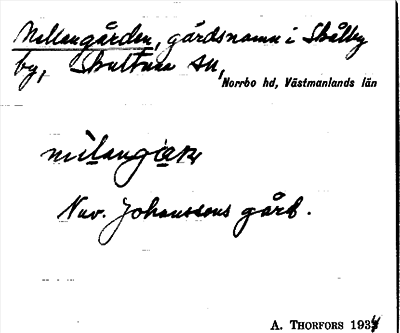 Mellangården, gårdsnamn i Skålby
by, Skultuna sn,
Norrbo hd, Västmanlands län
Nuv. Johanssons gård.
A. THORFORS 1934